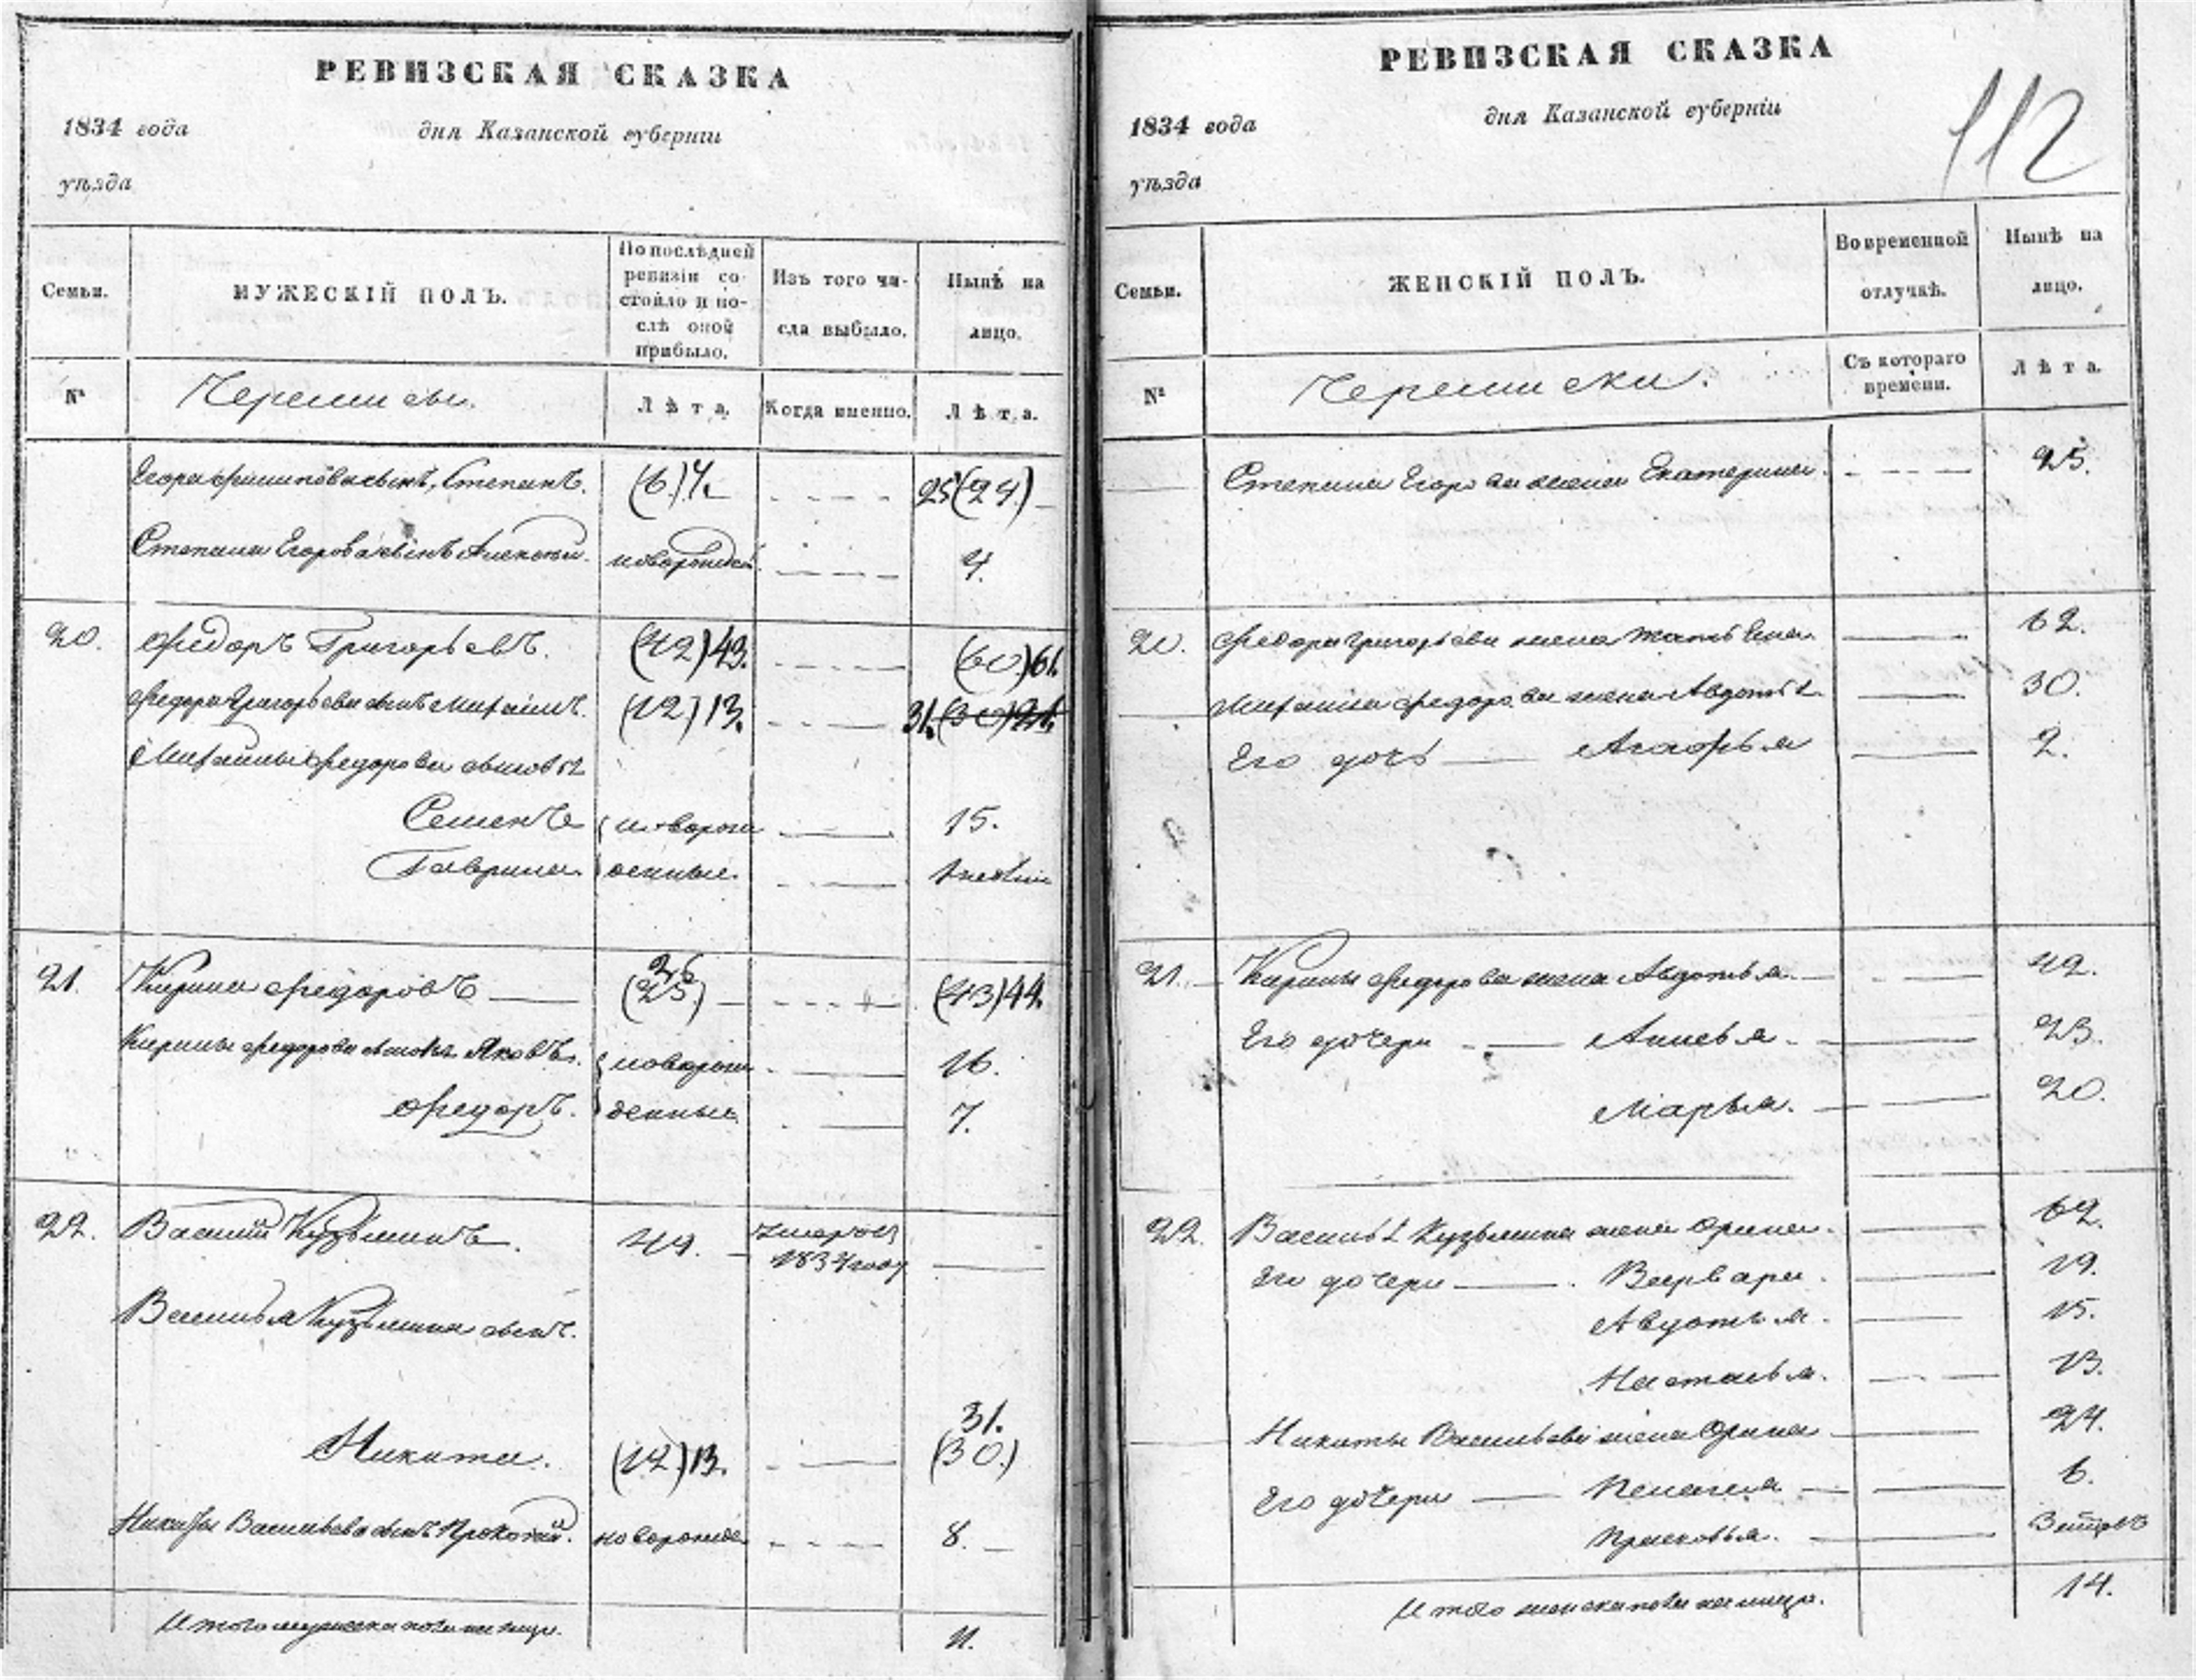 РЕВИЗСКАЯ СКАЗКА
1834 года
дня Казанской губерніи
уѣзда
Семьи.
МУЖЕСКІЙ ПОЛЪ.
По послѣдней ревизіи состояло и послѣ оной прибыло.
Изъ того числа выбыло.
Нынѣ на лицо.
№
Черемисы.
Лѣта.
Когда именно.
Лѣта.
Егора Филипова сынъ, Степанъ. (6.) 7. 25 (24.)
Степана Егорова сынъ Алексѣй. новорожден 4.
20. Федоръ Григорьевъ. (42) 43. (60) 61.
Федора Григорьева сынъ (12) 13. 31. (30) 21.
Федорова сыновья
Семенъ новорож 15.
Гаврила денные.
21. Кирила Федоровъ 26 (25.) (43) 44.
Кирилы Федорова сыновья Яковъ. новорож 16.
Федоръ. денные 7.
22. Василій Кузьминъ. 49. Умеръ въ 1834 году
Василья Кузьмина сынъ.
Никита. (12) 13. 31. (30.)
Никиты Васильева сынъ Прокопій. новорожде 8.
Итого мужеска пола на лицо. 11.
РЕВИЗСКАЯ СКАЗКА
112
1834 года
дня Казанской губерніи
уѣзда
Семьи.
ЖЕНСКІЙ ПОЛЪ.
Во временной отлучкѣ.
Нынѣ на лицо.
№
Черемиски.
Съ котораго времени.
Лѣта.
Степана Егорова жена Екатерина. 25.
20. Федора Григорьева жена 62.
Федорова жена Авдотья 30.
Его дочь Агафья 2.
21. Кирилы Федорова жена Авдотья. 42.
Его дочери Анисья. 23.
Марья. 20.
22. Василья Кузьмина жена Орина. 62.
Его дочери Варвара. 19.
Авдотья. 15.
Настасья. 13.
Никиты Васильева жена Орина 24.
Его дочери Пелагея 6.
Прасковья.
Итого женска пола на лицо. 14.